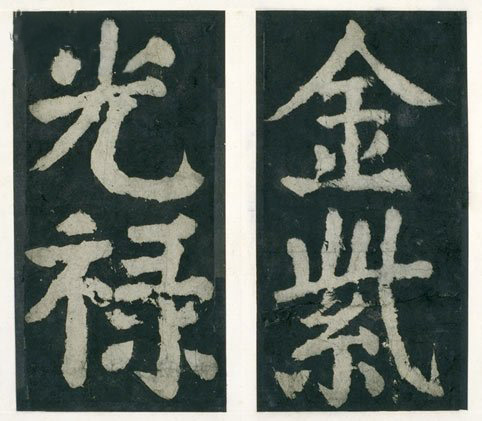 金紫
光禄